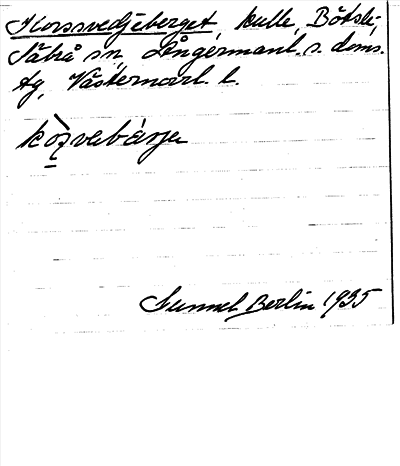 Korssvedjeberget, kulle, Böksk:
Säbrå sn, Ångermanl. s. doms.
tg, Västernorrl. l.
Gunnel Berlin 1935